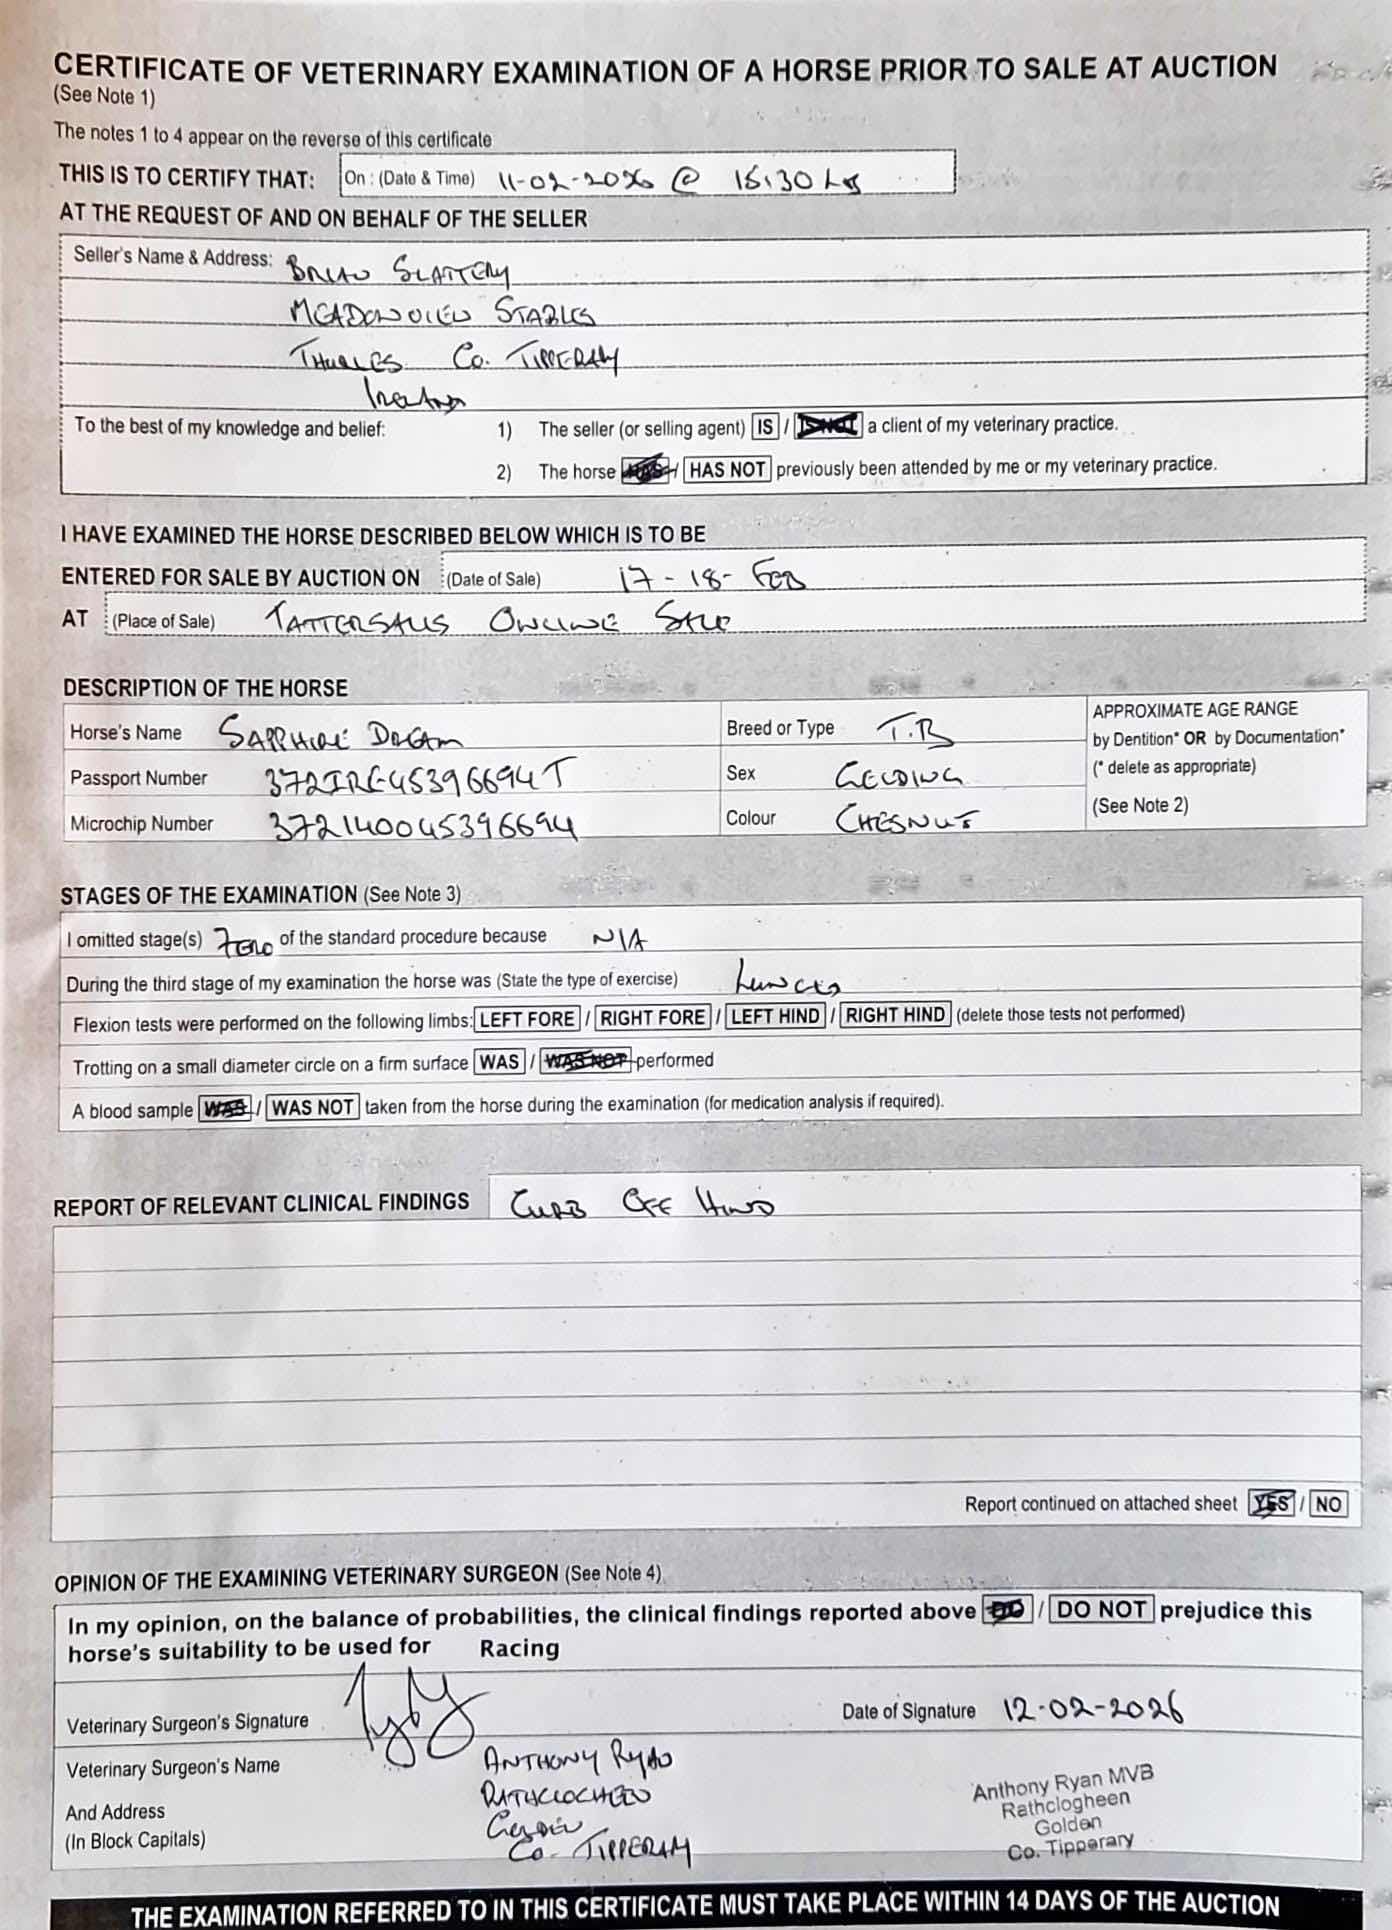 CERTIFICATE OF VETERINARY EXAMINATION OF A HORSE PRIOR TO SALE AT AUCTION
(See Note 1)
The notes 1 to 4 appear on the reverse of this certificate
THIS IS TO CERTIFY THAT: On : (Date & Time) 11-02-2026 @ 15:30 hrs
AT THE REQUEST OF AND ON BEHALF OF THE SELLER
Seller's Name & Address: BRIAN SLATTERY
MEADOWVIEW STABLES
THURLES CO. TIPPERARY
IRELAND
To the best of my knowledge and belief: 1) The seller (or selling agent) IS / IS NOT a client of my veterinary practice.
2) The horse HAS / HAS NOT previously been attended by me or my veterinary practice.
I HAVE EXAMINED THE HORSE DESCRIBED BELOW WHICH IS TO BE
ENTERED FOR SALE BY AUCTION ON (Date of Sale) 17-18- FEB
AT (Place of Sale) TATTERSALLS ONLINE SALE
DESCRIPTION OF THE HORSE
Horse's Name SAPPHIRE DREAM Breed or Type T.B APPROXIMATE AGE RANGE
by Dentition* OR by Documentation*
Passport Number 372IRE45396694T Sex GELDING (* delete as appropriate)
Microchip Number 372140045396694 Colour CHESNUT (See Note 2)
STAGES OF THE EXAMINATION (See Note 3)
I omitted stage(s) ZERO of the standard procedure because N/A
During the third stage of my examination the horse was (State the type of exercise) LUNGED
Flexion tests were performed on the following limbs: LEFT FORE / RIGHT FORE / LEFT HIND / RIGHT HIND (delete those tests not performed)
Trotting on a small diameter circle on a firm surface WAS / WAS NOT performed
A blood sample WAS / WAS NOT taken from the horse during the examination (for medication analysis if required).
REPORT OF RELEVANT CLINICAL FINDINGS CURB OFF HIND
Report continued on attached sheet YES / NO
OPINION OF THE EXAMINING VETERINARY SURGEON (See Note 4)
In my opinion, on the balance of probabilities, the clinical findings reported above DO / DO NOT prejudice this
horse's suitability to be used for Racing
Veterinary Surgeon's Signature Date of Signature 12-02-2026
Veterinary Surgeon's Name ANTHONY RYAN
And Address RATHCLOGHEEN
(In Block Capitals) GOLDEN
CO. TIPPERARY
Anthony Ryan MVB
Rathclogheen
Golden
Co. Tipperary
THE EXAMINATION REFERRED TO IN THIS CERTIFICATE MUST TAKE PLACE WITHIN 14 DAYS OF THE AUCTION